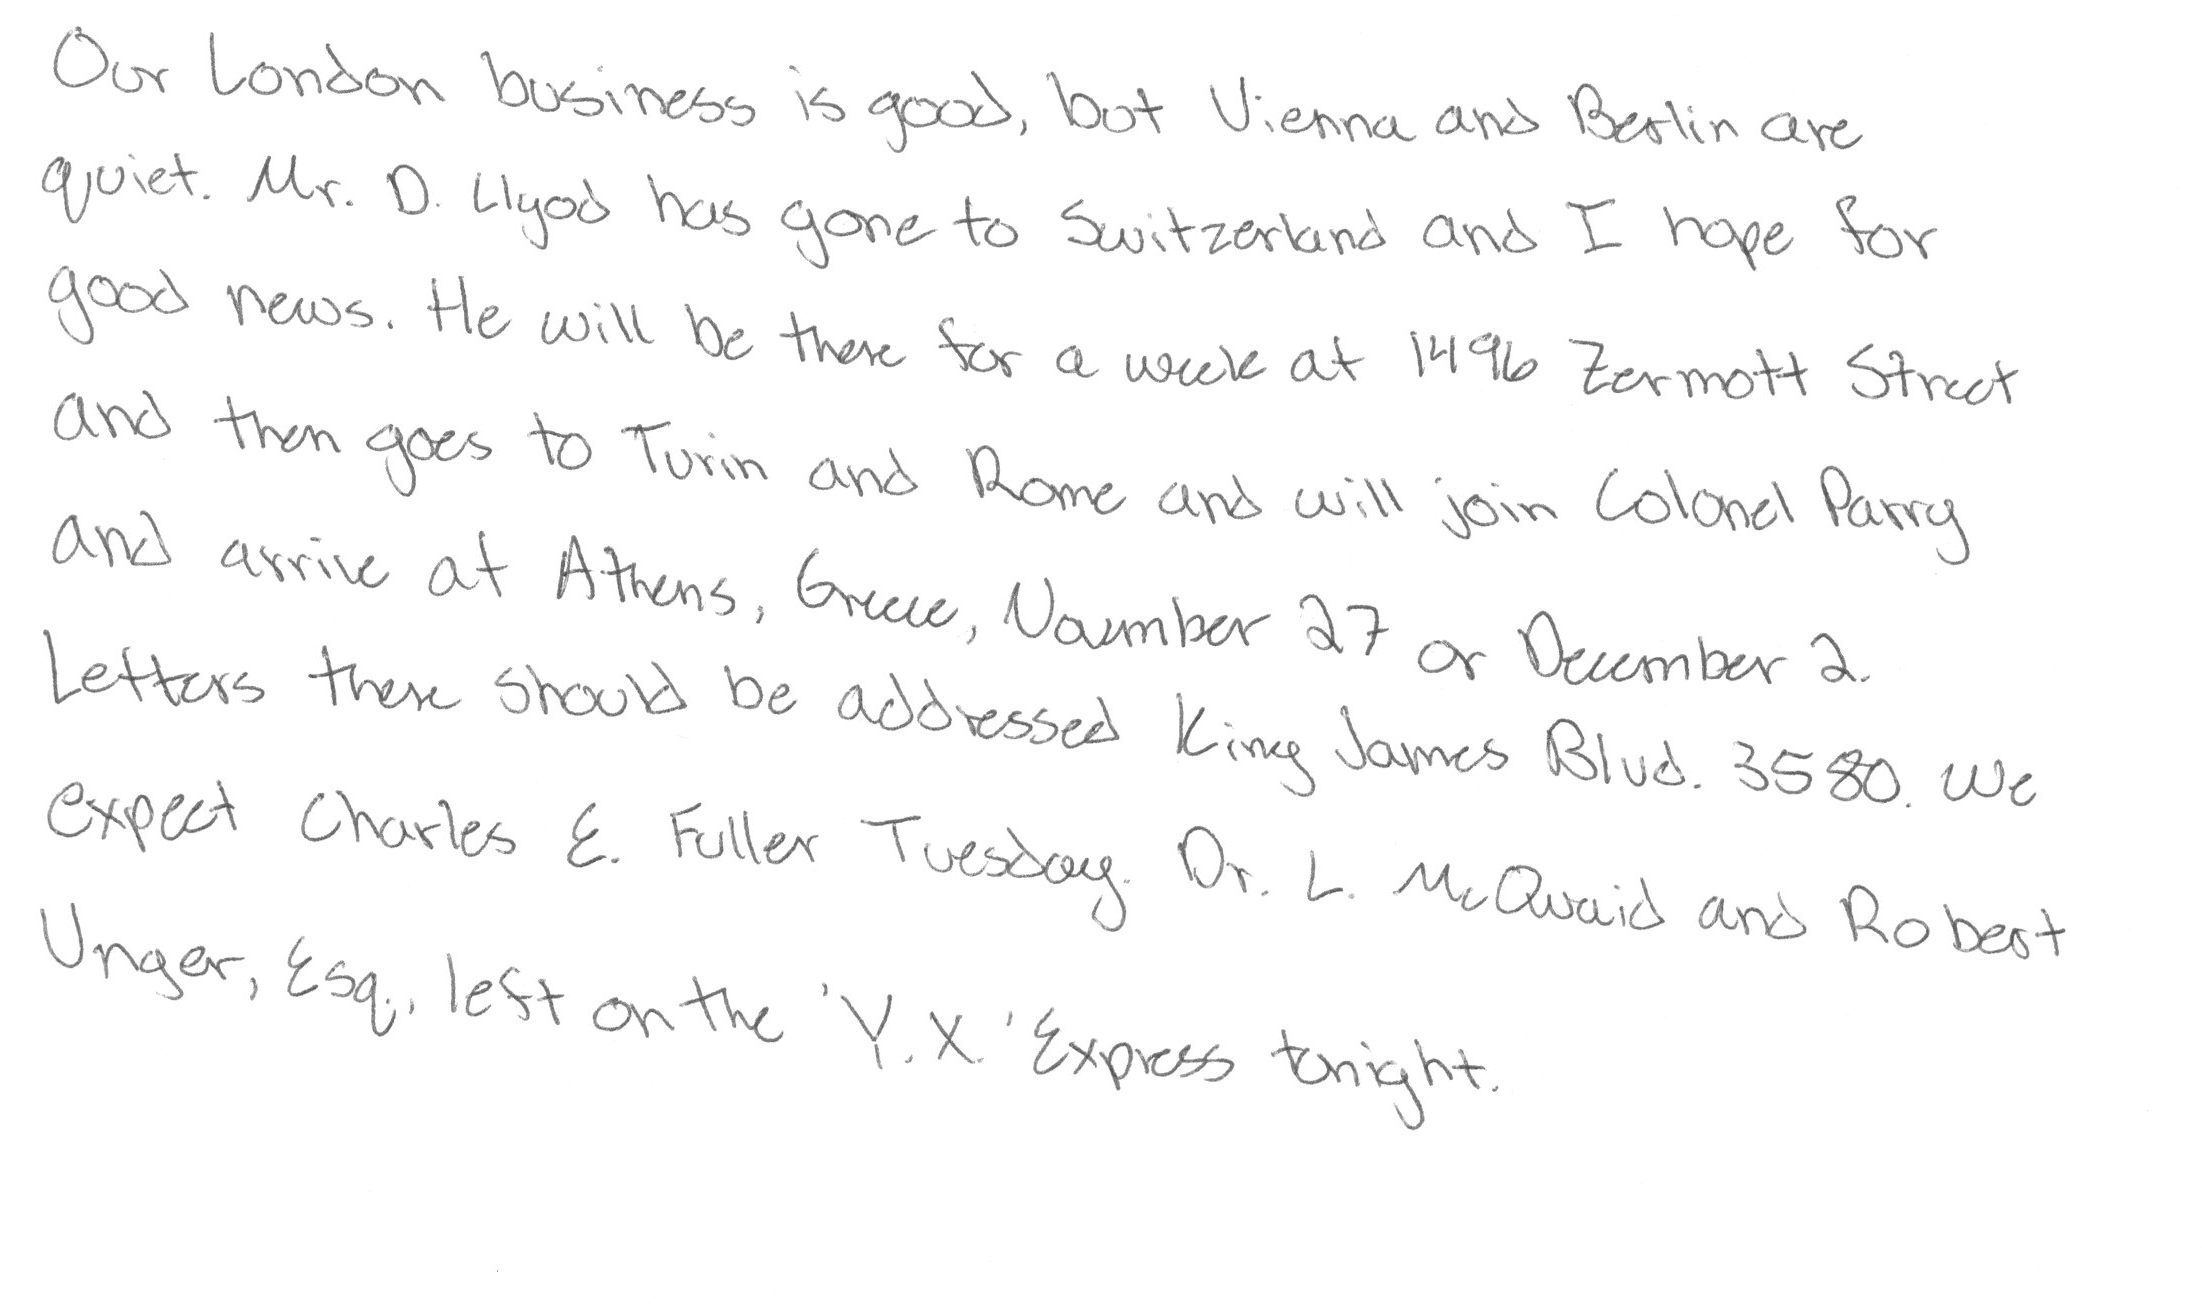 Our London business is good, but Vienna and Berlin are
quiet. Mr. D. Llyod has gone to Switzerland and I hope for
good news. He will be there for a week at 1496 Zermott Street
and then goes to Turin and Rome and will join Colonel Parry
and arrive at Athens, Greece, November 27 or December 2.
Letters there should be addressed King James Blvd. 3580. We
expect Charles E. Fuller Tuesday. Dr. L. McQuaid and Robert
Unger, Esq., left on the 'Y.X.' Express tonight.